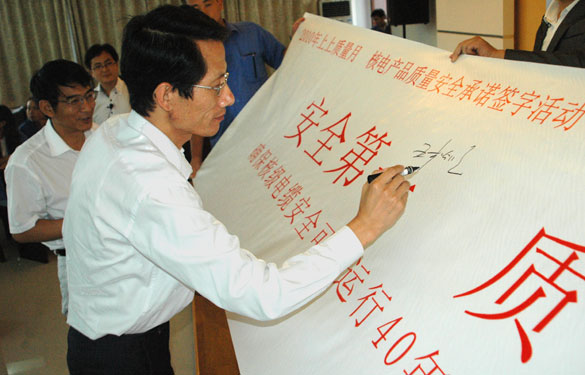 2010年上上质量月 核电产品质量安全承诺签字活动
安全第 质
确保核级电缆安全可 运行40年